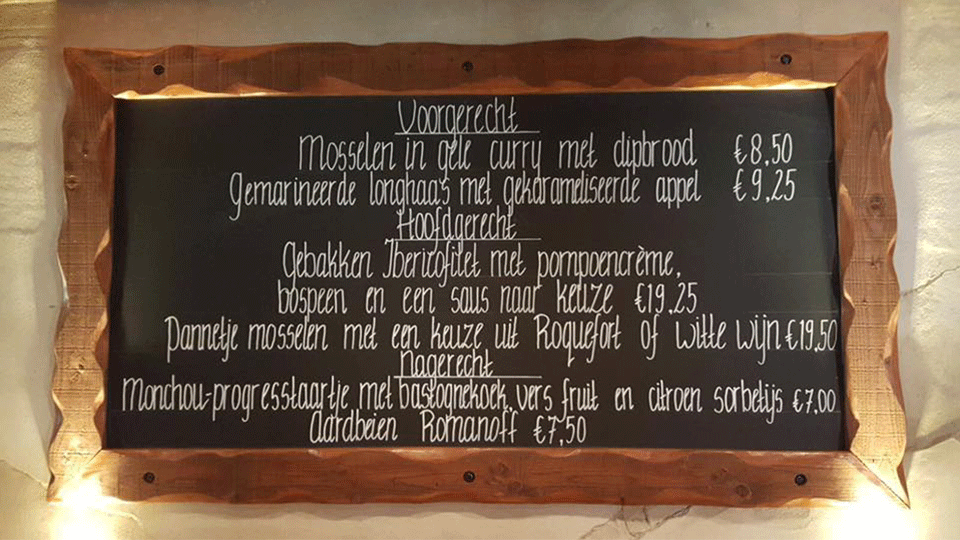 Voorgerecht
Mosselen in gele curry met dipbrood €8,50
Gemarineerde longhaas met gekarameliseerde appel €9,25
Hoofdgerecht
Gebakken Ibericofilet met pompoencrème,
bospeen en een saus naar keuze €19,25
Pannetje mosselen met een keuze uit Roquefort of witte wijn €19,50
Nagerecht
Monchou-progresstaartje met bastognekoek, vers fruit en citroen sorbetijs €7,00
Aardbeien Romanoff €7,50